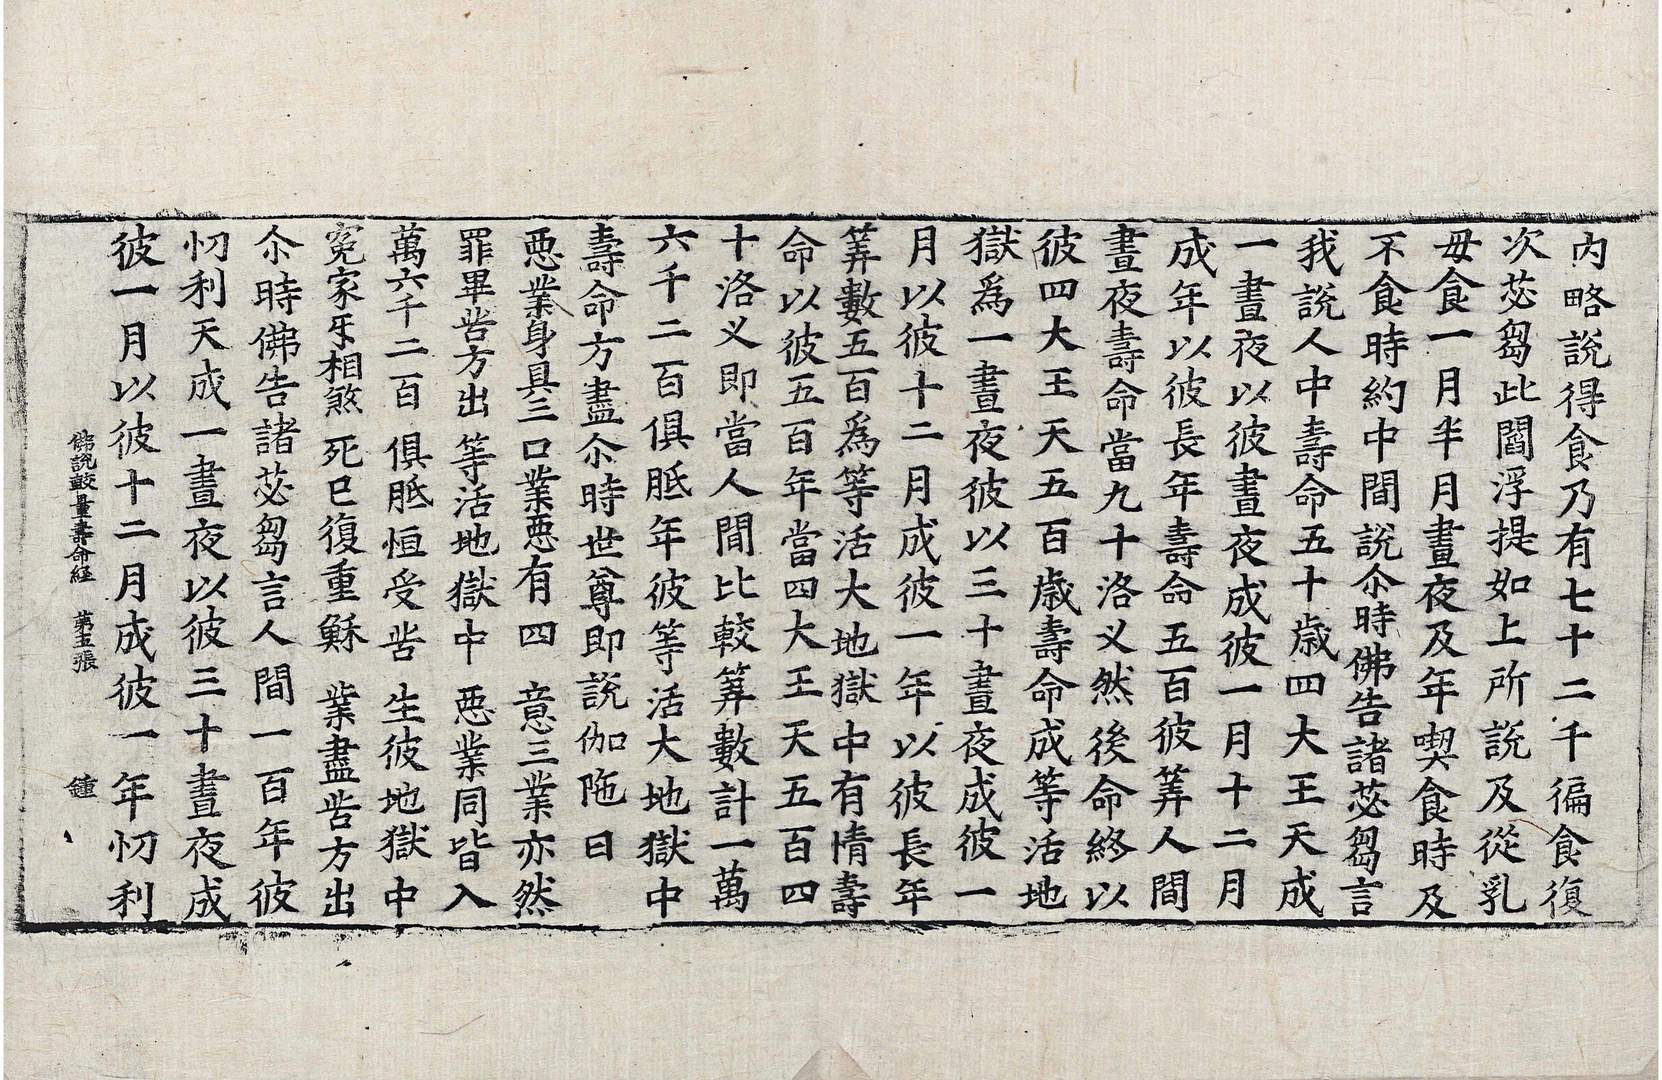 内略說得食乃有七十二千徧食復
次苾芻此閻浮提如上所說及從乳
母食一月半月晝夜及年喫食時及
不食時約中間說尒時佛告諸苾芻言
我說人中壽命五十歲四大王天成
一晝夜以彼晝夜成彼一月十二月
成年以彼長年壽命五百彼筭人間
晝夜壽命當九十洛义然後命終以
彼四大王天五百歲壽命成等活地
獄爲一晝夜彼以三十晝夜成彼一
月以彼十二月成彼一年以彼長年
筭數五百爲等活大地獄中有情壽
命以彼五百年當四大王天五百四
十洛义即當人間比較筭數計一萬
六千二百俱胝年彼等活大地獄中
壽命方盡尒時世尊即說伽陁曰
惡業身具三 口業惡有四 意三業亦然
罪畢苦方出 等活地獄中 惡業同皆入
萬六千二百 俱胝恒受苦 生彼地獄中
冤家牙相煞 死已復重穌 業盡苦方出
尒時佛告諸苾芻言人間一百年彼
忉利天成一晝夜以彼三十晝夜成
彼一月以彼十二月成彼一年忉利
佛說較量壽命経 第五張 鍾